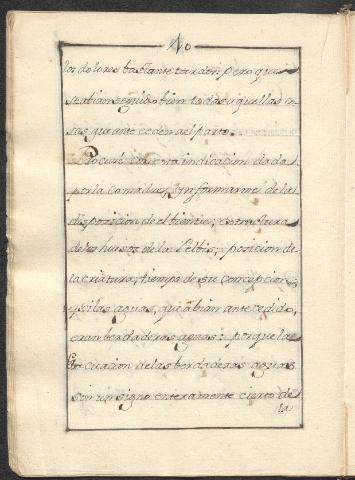 los dolores bastante tardon pero que si
se abian seguido bien todas aquellas co
sas que anteceden ael parto.
Procuré con esta indicacion dada
por la Comadre, Ynformarme de la
disposizion de el bientre, estructura
de los huesos de la Pelbis, posicion de
la criatura, tiempo de su concepcion
y si las aguas, que abian antecedido,
eran berdaderas aguas: porque la
cuacion de las berdaderas aguas
son un signo enteramente cierto de
la